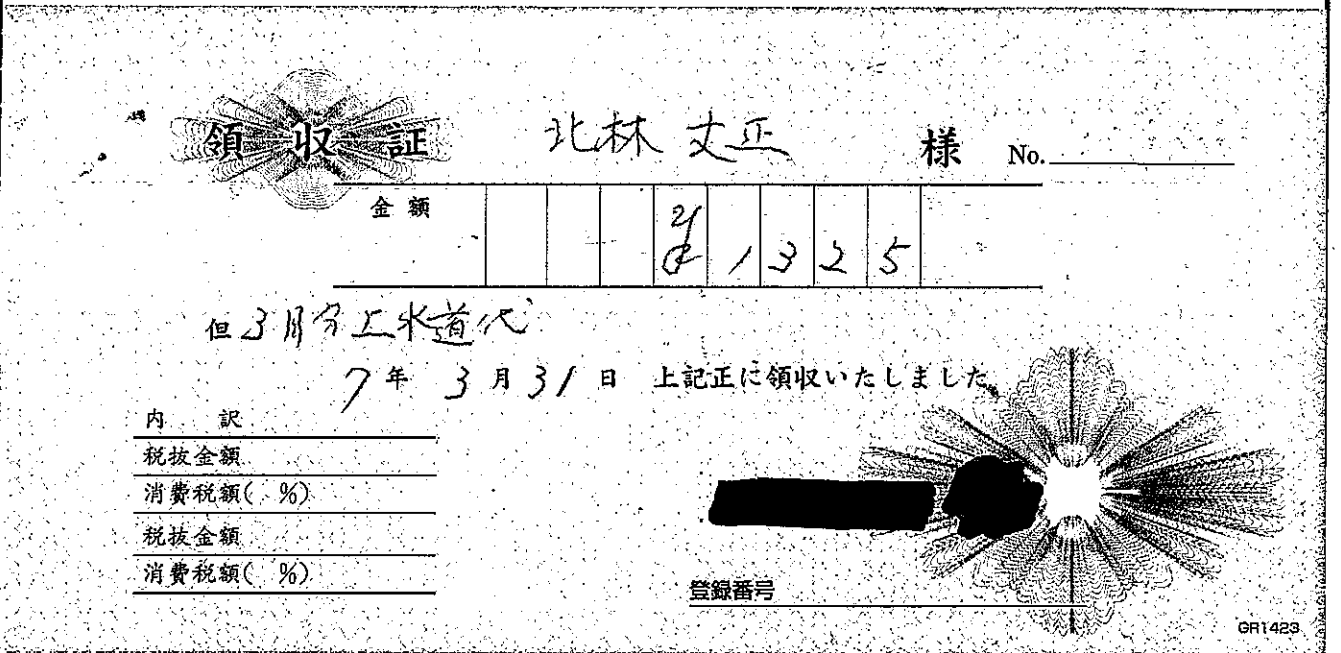 領収証 北林 丈正 様 No.
金額 ¥1325
但 3月分上水道代
7年 3月 31日 上記正に領収いたしました
内 訳
税抜金額
消費税額( %)
税抜金額
消費税額( %)
登録番号
GR1423